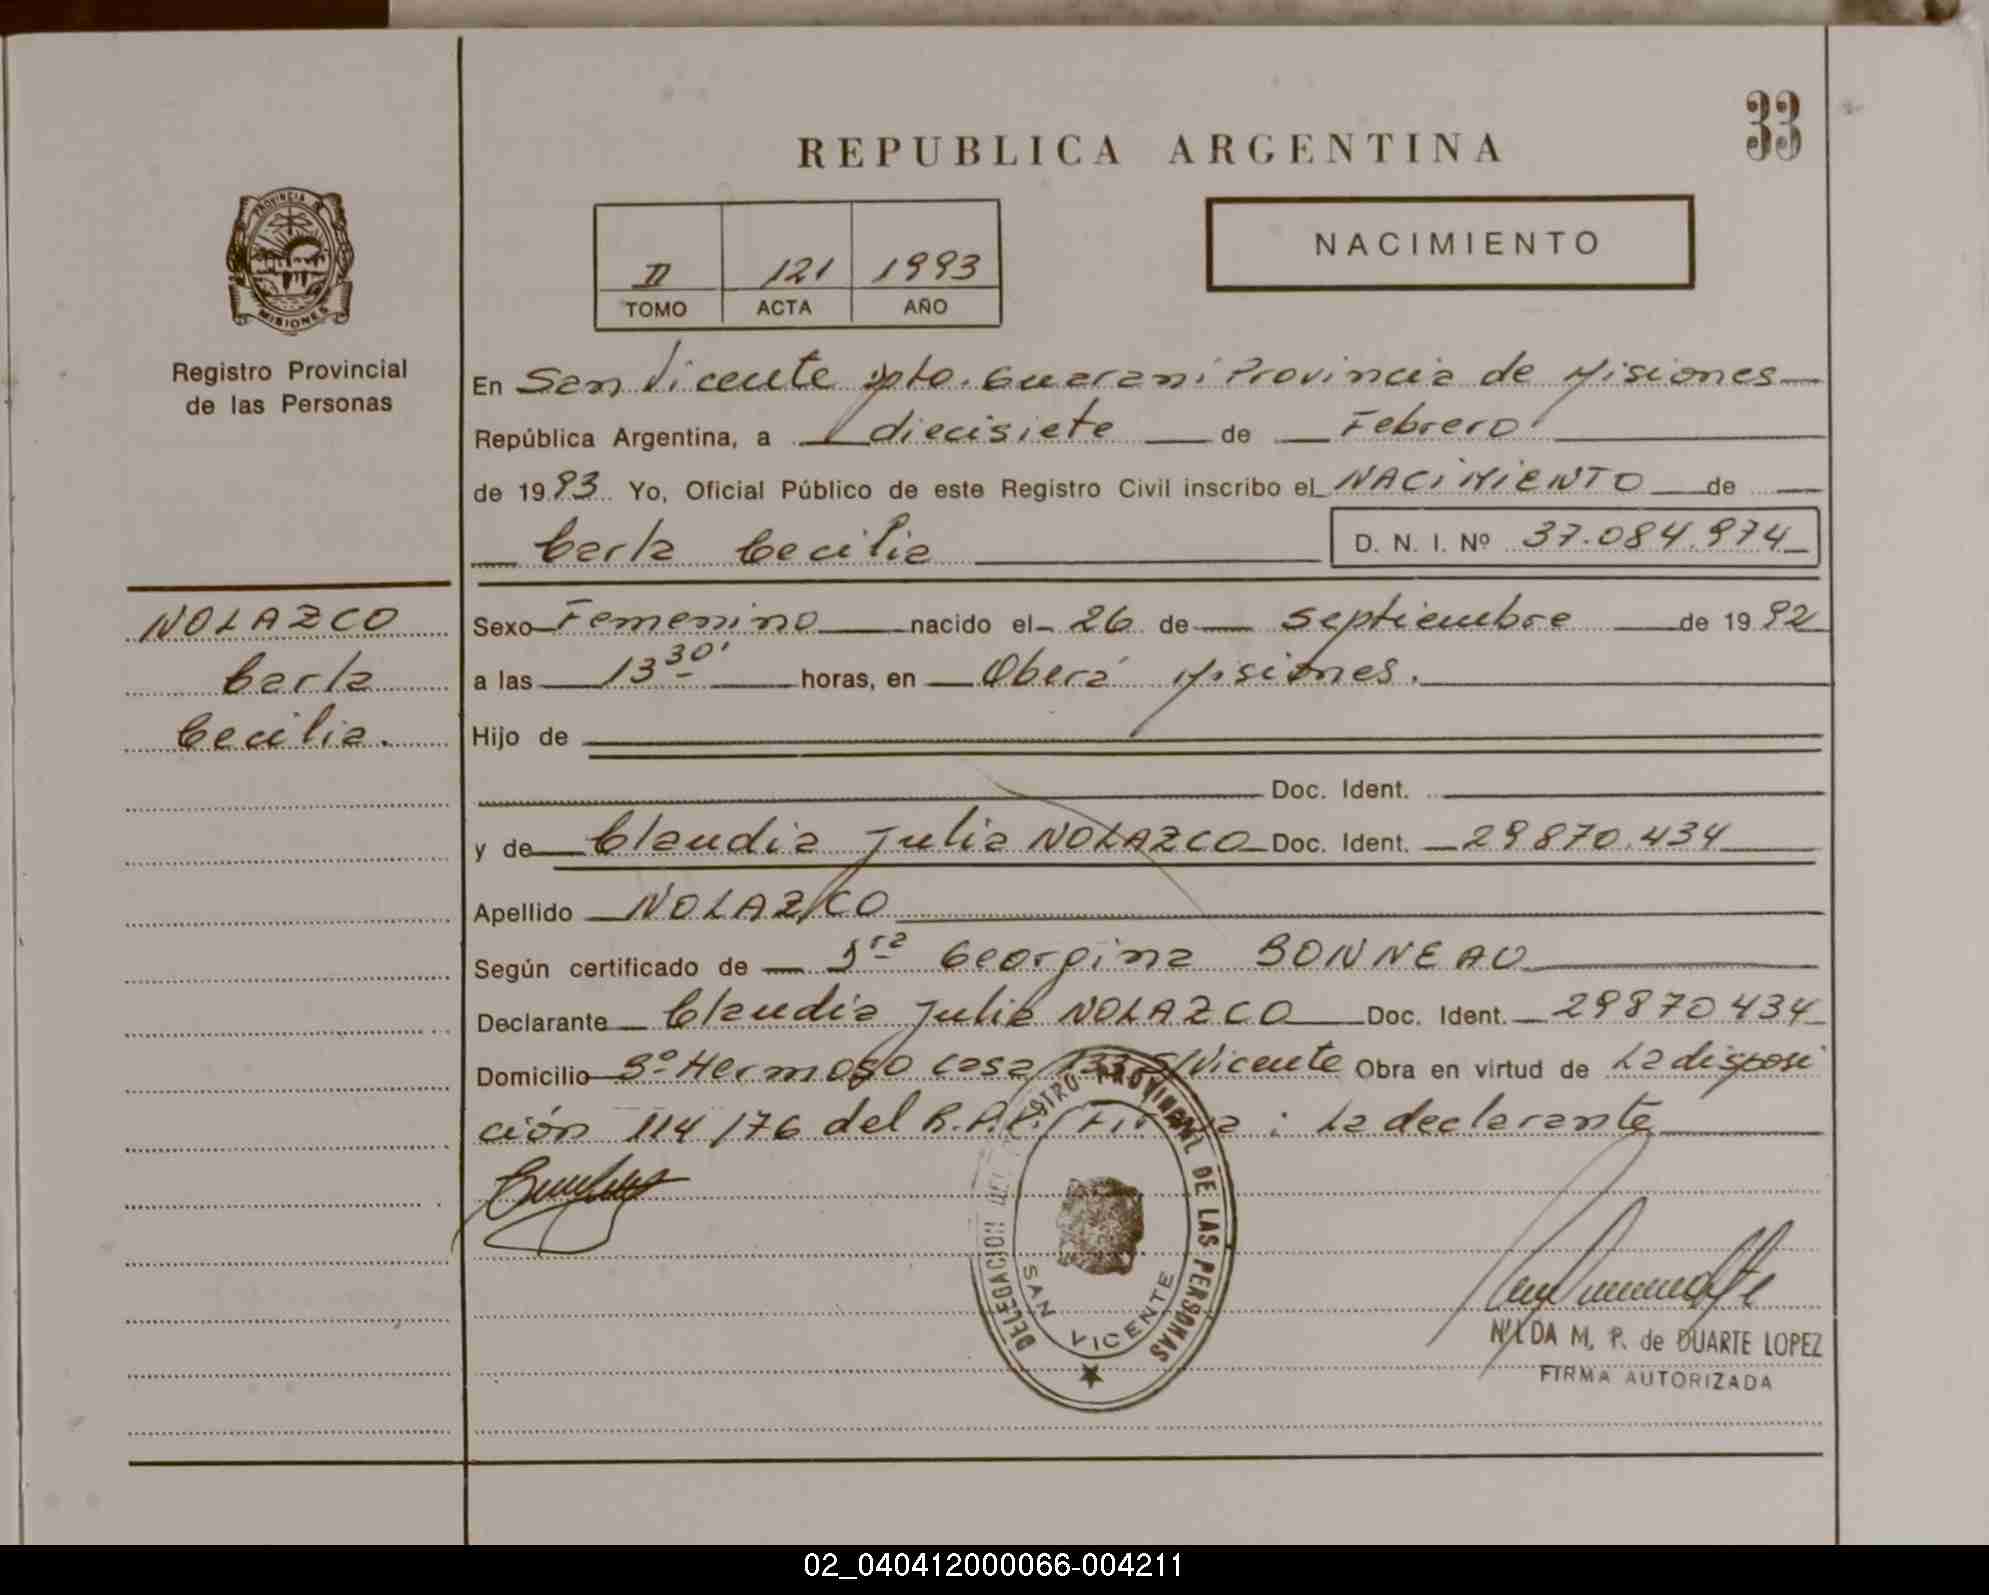 33
REPUBLICA ARGENTINA
NACIMIENTO
II 121 1993
TOMO ACTA AÑO
PROVINCIA DE
MISIONES
Registro Provincial
de las Personas
NOLAZCO
Carla
Cecilia.
En San Vicente Dpto. Guaraní Provincia de Misiones
República Argentina, a diecisiete de Febrero
de 1993 Yo, Oficial Público de este Registro Civil inscribo el NACIMIENTO de
Carla Cecilia D. N. I. Nº 37.084.974
Sexo Femenino nacido el 26 de Septiembre de 1992
a las 13 30' horas, en Oberá Misiones.
Hijo de
Doc. Ident.
y de Claudia Julia NOLAZCO Doc. Ident. 29870.434
Apellido NOLAZCO
Según certificado de Georgina BONNEAU
Declarante Claudia Julia NOLAZCO Doc. Ident. 29870434
Domicilio Bº Hermoso casa 133 S/Vicente Obra en virtud de La disposi
ción 114/76 del R.P.P. Firma : La declarante
DELEGACION DEL REGISTRO PROVINCIAL DE LAS PERSONAS
SAN VICENTE
NILDA M. P. de DUARTE LOPEZ
FIRMA AUTORIZADA
02_040412000066-004211